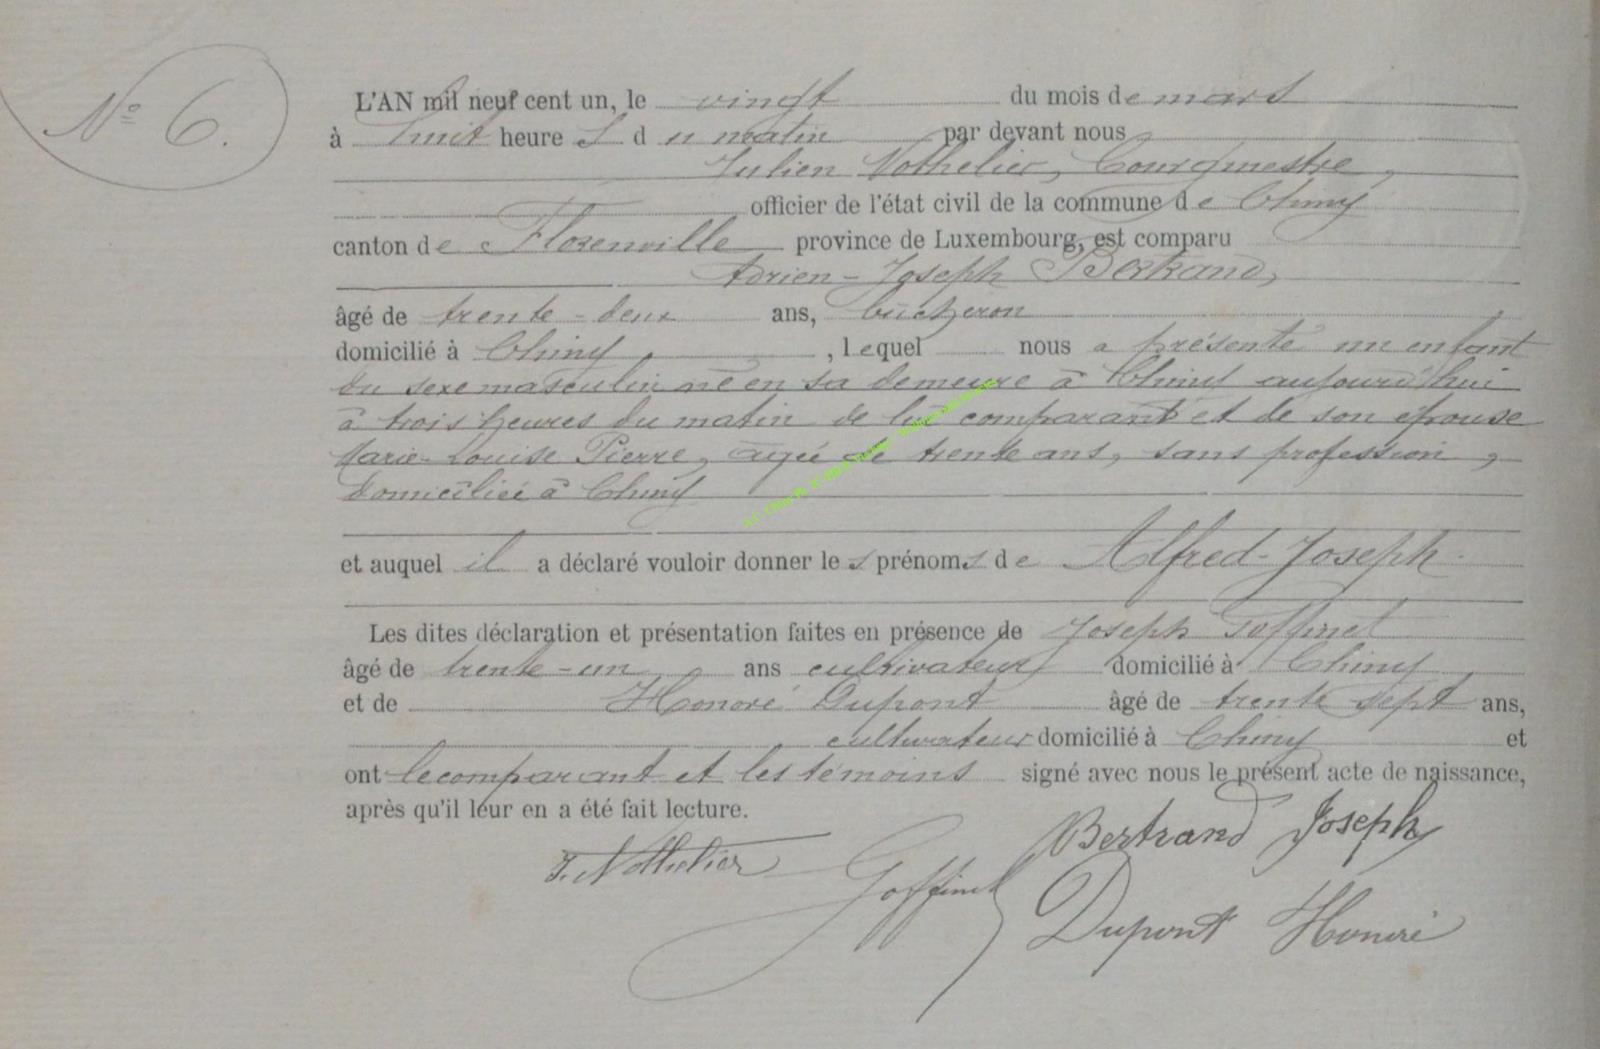 N° 6.
L'AN mil neuf cent un, le vingt du mois de mars
à huit heures du matin par devant nous
Julien Nothelier, Bourgmestre,
officier de l'état civil de la commune de Chiny
canton de Florenville province de Luxembourg, est comparu
Adrien-Joseph Bertrand,
âgé de trente-deux ans, bûcheron
domicilié à Chiny, lequel nous a présenté un enfant
du sexe masculin né en sa demeure à Chiny aujourd'hui
à trois heures du matin de lui comparant et de son épouse
Marie-Louise Pierre, agée de trente ans, sans profession,
domiciliée à Chiny
et auquel il a déclaré vouloir donner les prénoms de Alfred-Joseph.
Les dites déclaration et présentation faites en présence de Joseph Goffinet
âgé de trente-un ans cultivateur domicilié à Chiny
et de Honoré Dupont âgé de trente sept ans,
cultivateur domicilié à Chiny et
ont le comparant et les témoins signé avec nous le présent acte de naissance,
après qu'il leur en a été fait lecture.
Bertrand Joseph
J. Nothelier Goffinet
Dupont Honoré